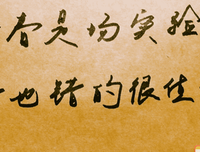 春是场实验
也错的很佳